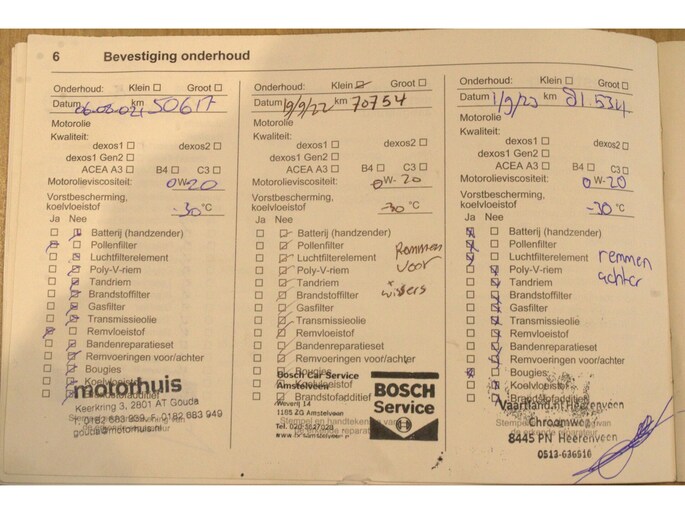 6 Bevestiging onderhoud
Onderhoud: Klein Groot
Datum 06-08-021 km 50617
Motorolie
Kwaliteit:
dexos1 dexos2
dexos1 Gen2
ACEA A3 B4 C3
Motorolieviscositeit: 0W-20
Vorstbescherming,
koelvloeistof -30 °C
Ja Nee
Batterij (handzender)
Pollenfilter
Luchtfilterelement
Poly-V-riem
Tandriem
Brandstoffilter
Gasfilter
Transmissieolie
Remvloeistof
Bandenreparatieset
Remvoeringen voor/achter
Bougies
Koelvloeistof
motorhuis
Keerkring 3, 2801 AT Gouda
F. 0182 683 949
gouda@motorhuis.nl
Onderhoud: Klein Groot
Datum 19/9/22 km 70754
Motorolie
Kwaliteit:
dexos1 dexos2
dexos1 Gen2
ACEA A3 B4 C3
Motorolieviscositeit: 0W-20
Vorstbescherming,
koelvloeistof -30 °C
Ja Nee
Batterij (handzender)
Pollenfilter Remmen
Luchtfilterelement voor
Poly-V-riem
Tandriem
Brandstoffilter wissers
Gasfilter
Transmissieolie
Remvloeistof
Bandenreparatieset
Remvoeringen voor/achter
Bougies
Koelvloeistof
Brandstofadditief
Bosch Car Service
Amstelveen
1185 ZG Amstelveen
Tel. 020-3627028
BOSCH
Service
Onderhoud: Klein Groot
Datum 1/9/23 km 81.534
Motorolie
Kwaliteit:
dexos1 dexos2
dexos1 Gen2
ACEA A3 B4 C3
Motorolieviscositeit: 0W-20
Vorstbescherming,
koelvloeistof -30 °C
Ja Nee
Batterij (handzender)
Pollenfilter
Luchtfilterelement remmen
Poly-V-riem achter
Tandriem
Brandstoffilter
Gasfilter
Transmissieolie
Remvloeistof
Bandenreparatieset
Remvoeringen voor/achter
Bougies
Koelvloeistof
Brandstofadditief
Vaartland.nl Heerenveen
Chroomweg
8445 PN Heerenveen
0513-636516